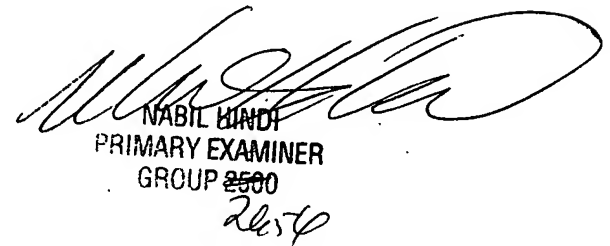 NABIL HINDI
PRIMARY EXAMINER
GROUP 2500
2654